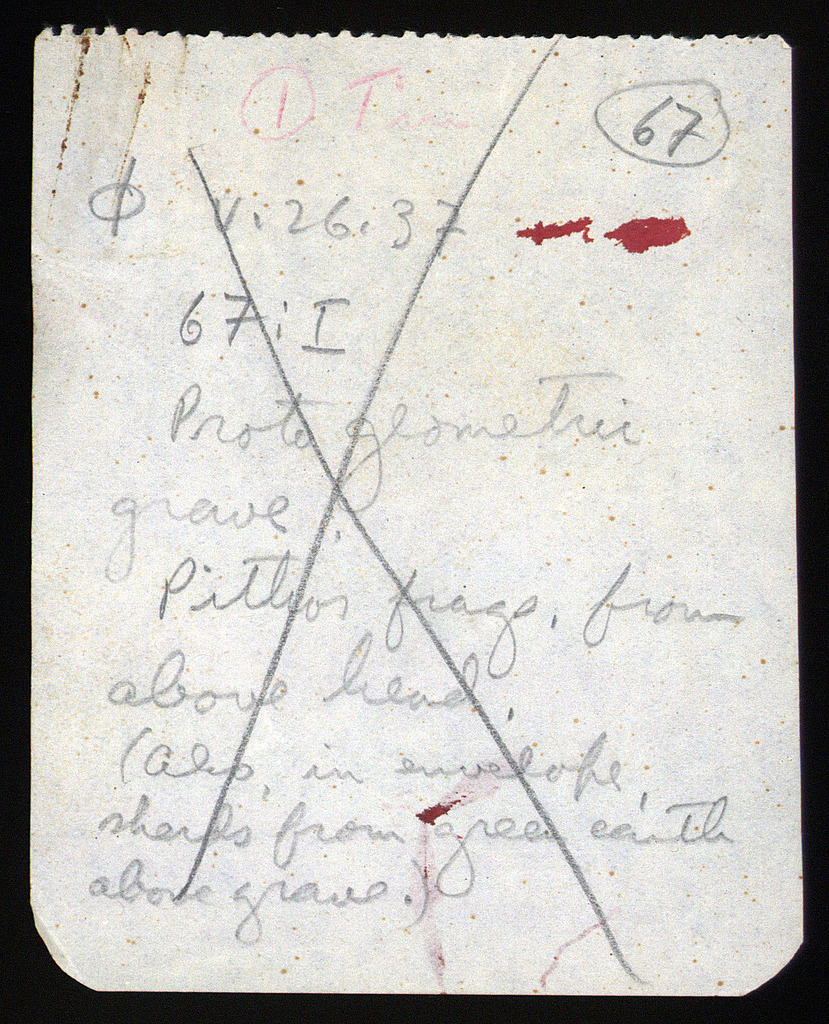 ① 67
Φ V.26.37
67:I
Protogeometric
grave.
Pithos frags. from
above head.
(Also, in envelope,
sherds from green earth
above grave.)